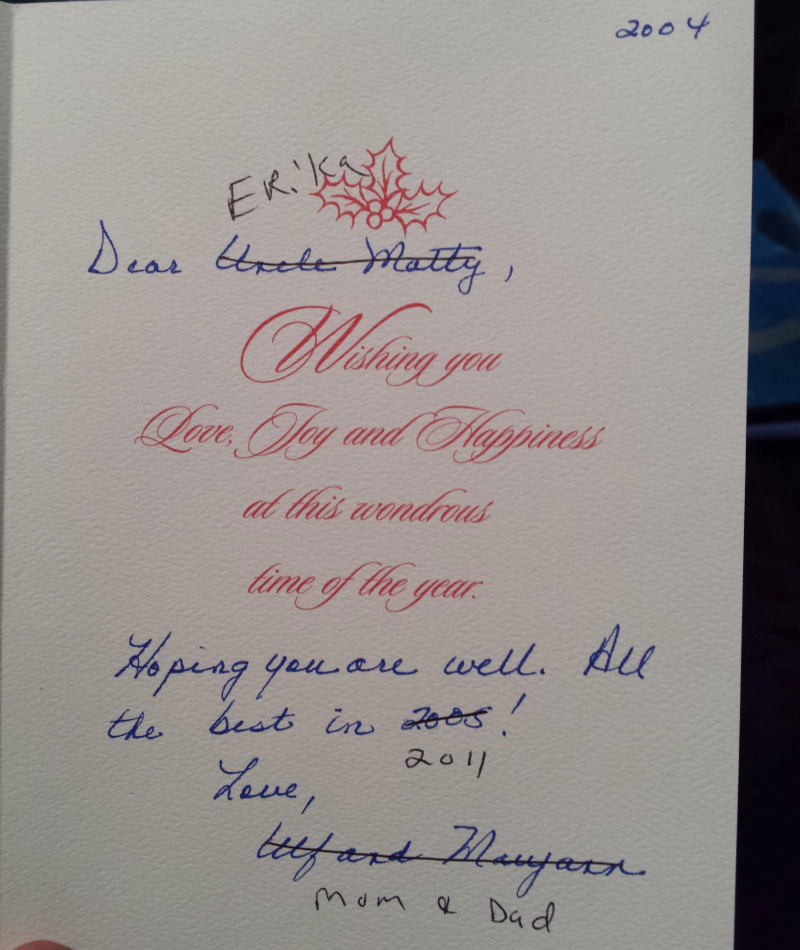 2004
ERika
Dear Uncle Matty,
Wishing you
Love, Joy and Happiness
at this wondrous
time of the year.
Hoping you are well. All
the best in 2005!
2011
Love,
Ulf and Maryann
Mom & Dad